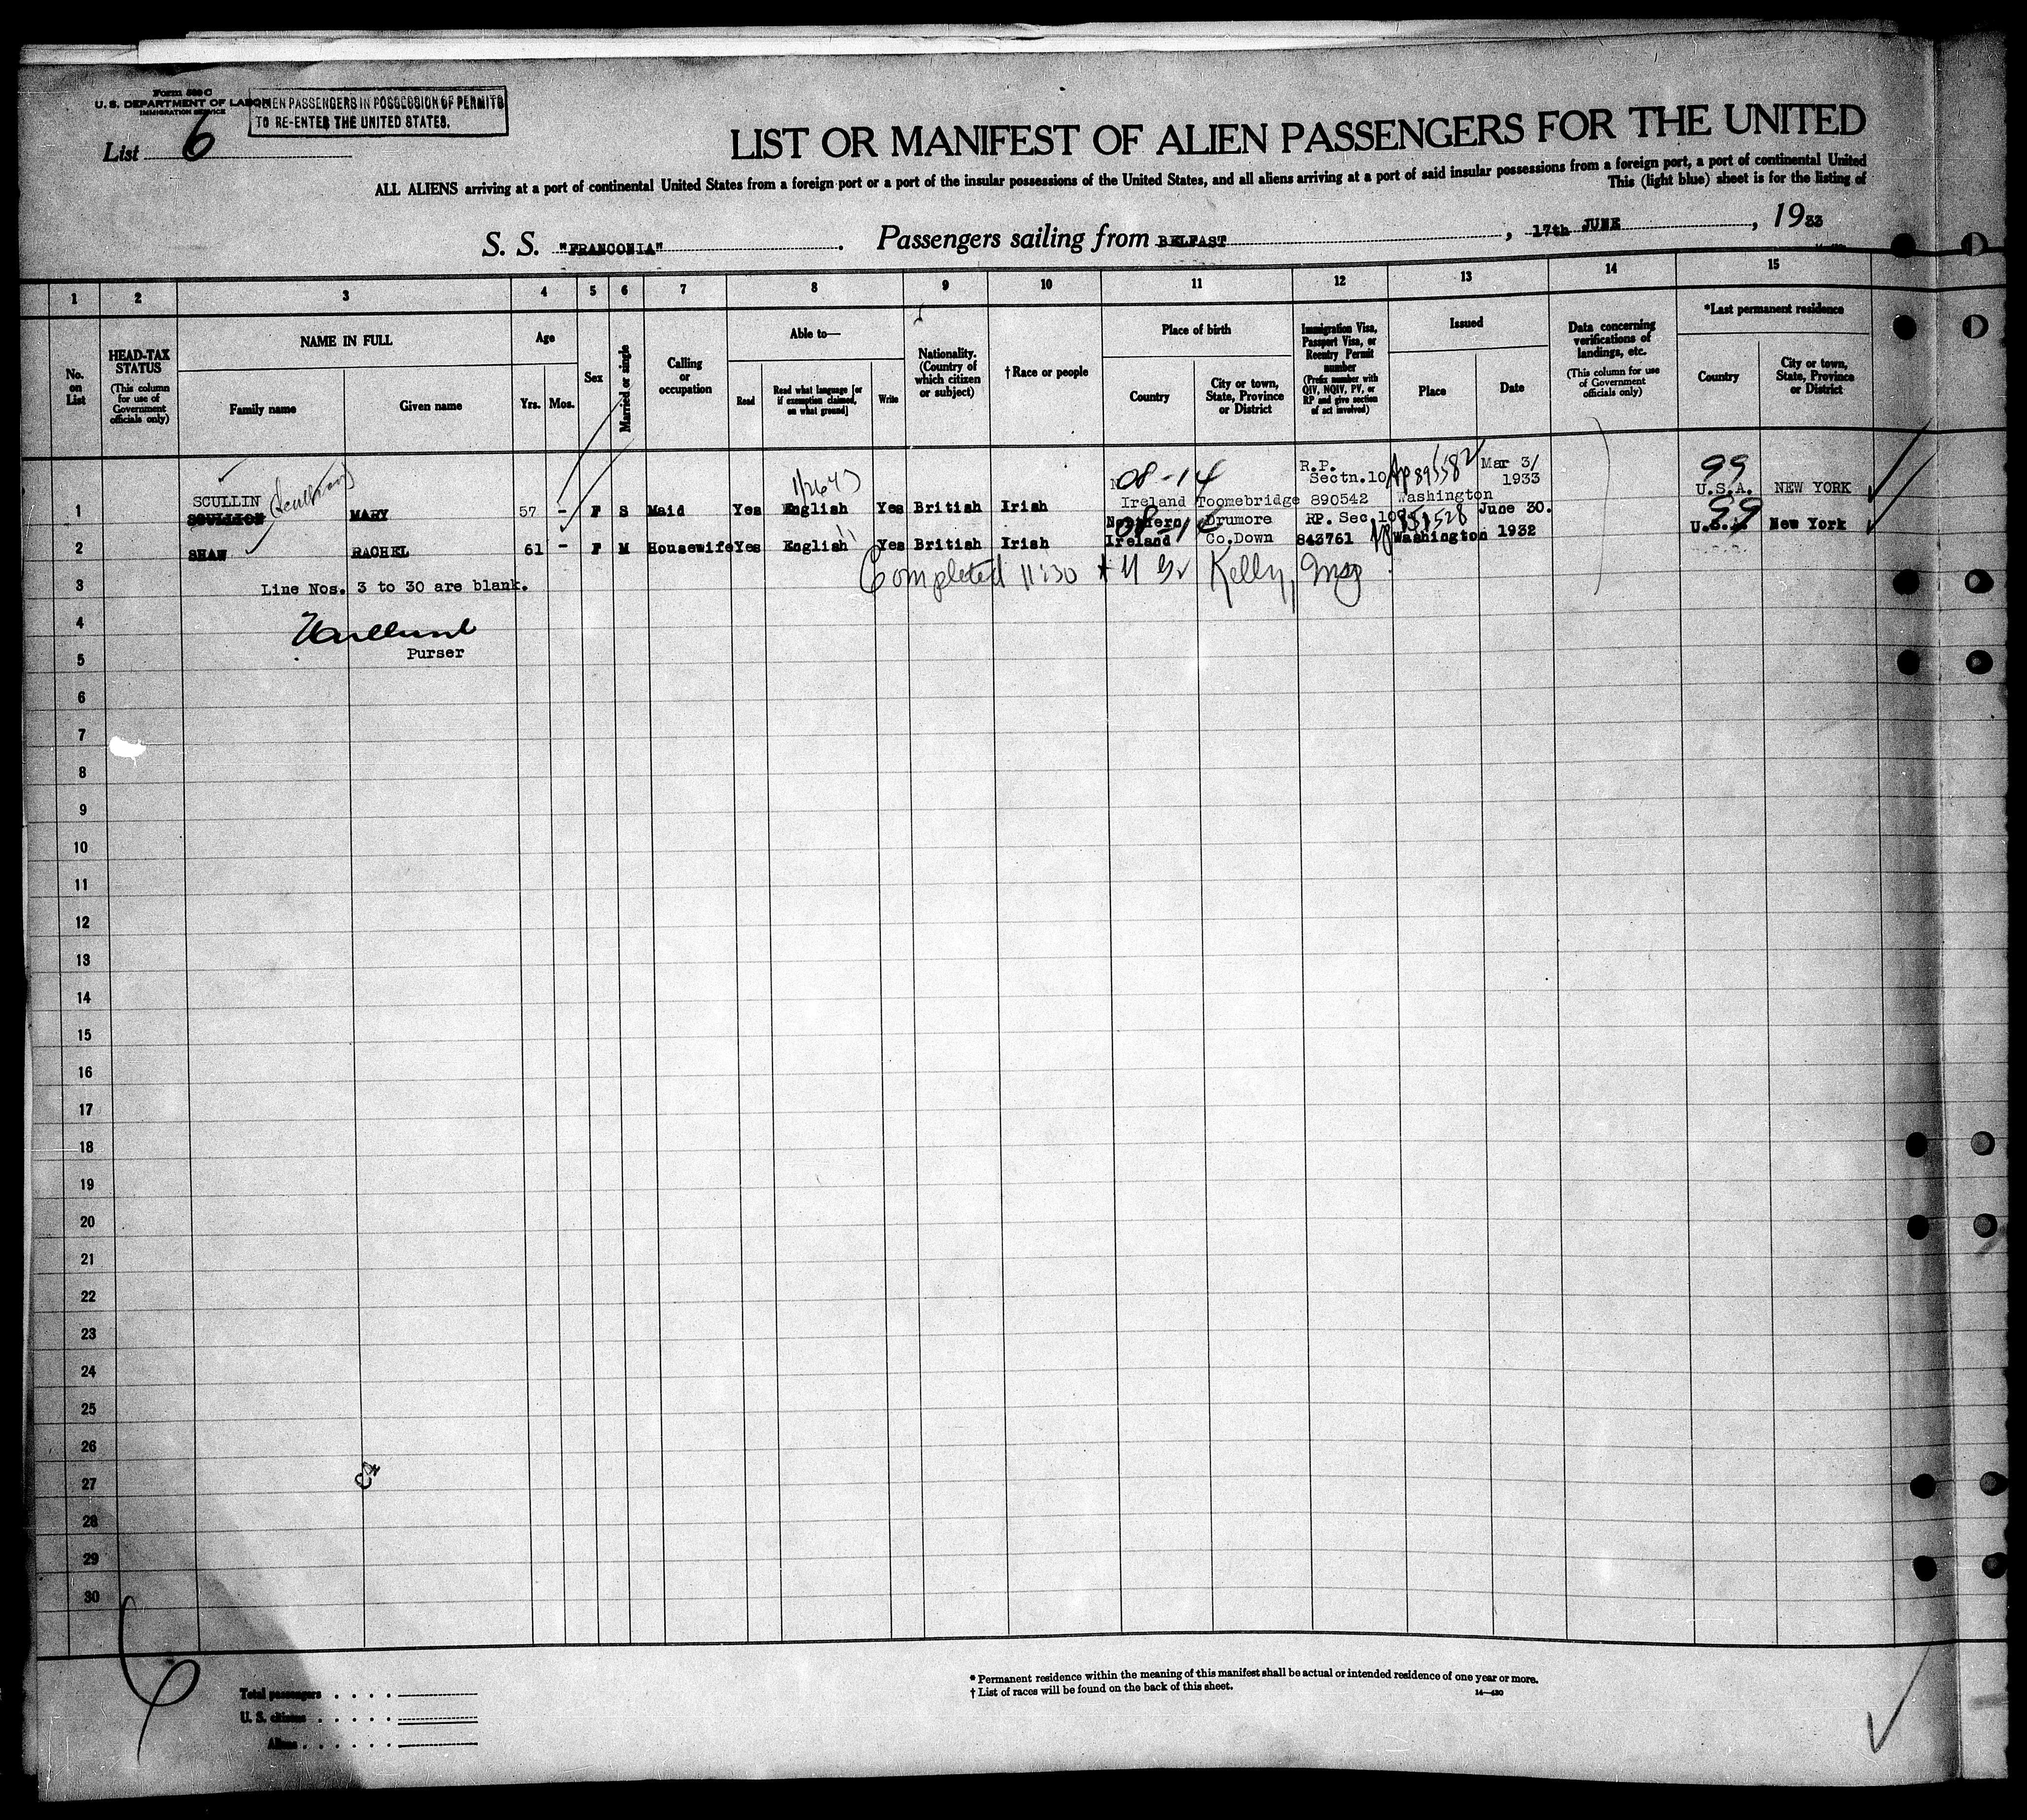 Form 500 C
U. S. DEPARTMENT OF LABOR
IMMIGRATION SERVICE
ALIEN PASSENGERS IN POSSESSION OF PERMITS
TO RE-ENTER THE UNITED STATES.
List 6
LIST OR MANIFEST OF ALIEN PASSENGERS FOR THE UNITED
ALL ALIENS arriving at a port of continental United States from a foreign port or a port of the insular possessions of the United States, and all aliens arriving at a port of said insular possessions from a foreign port, a port of continental United
This (light blue) sheet is for the listing of
S. S. "FRANCONIA". Passengers sailing from BELFAST, 17th JUNE, 1933
1 2 3 4 5 6 7 8 9 10 11 12 13 14 15
No. on List
HEAD-TAX STATUS
(This column for use of Government officials only)
NAME IN FULL
Family name
Given name
Age
Yrs.
Mos.
Sex
Married or single
Calling or occupation
Able to—
Read
Read what language [or if exemption claimed, on what ground]
Write
Nationality. (Country of which citizen or subject)
†Race or people
Place of birth
Country
City or town, State, Province or District
Immigration Visa, Passport Visa, or Reentry Permit number
(Prefix number with QIV, NQIV, PV, or RP and give section of act involved)
Issued
Place
Date
Data concerning verifications of landings, etc.
(This column for use of Government officials only)
*Last permanent residence
Country
City or town, State, Province or District
08-14 R.P. Mar 3/ 99
SCULLIN Sectn.10 1933 U.S.A. NEW YORK
1 SCULLION MARY 57 - F S Maid Yes English Yes British Irish Ireland Toomebridge 890542 Washington
Northern Drumore RP. Sec.10 June 30. 99
2 SHAW RACHEL 61 - F M Housewife Yes English Yes British Irish Ireland Co.Down 843761 Washington 1932 U.S.A. New York
Completed 11:30 Kelly, Insp
3 Line Nos. 3 to 30 are blank.
4
5 Purser
6
7
8
9
10
11
12
13
14
15
16
17
18
19
20
21
22
23
24
25
26
27
28
29
30
Total passengers
U. S. citizens
Aliens
* Permanent residence within the meaning of this manifest shall be actual or intended residence of one year or more.
† List of races will be found on the back of this sheet.
14—430